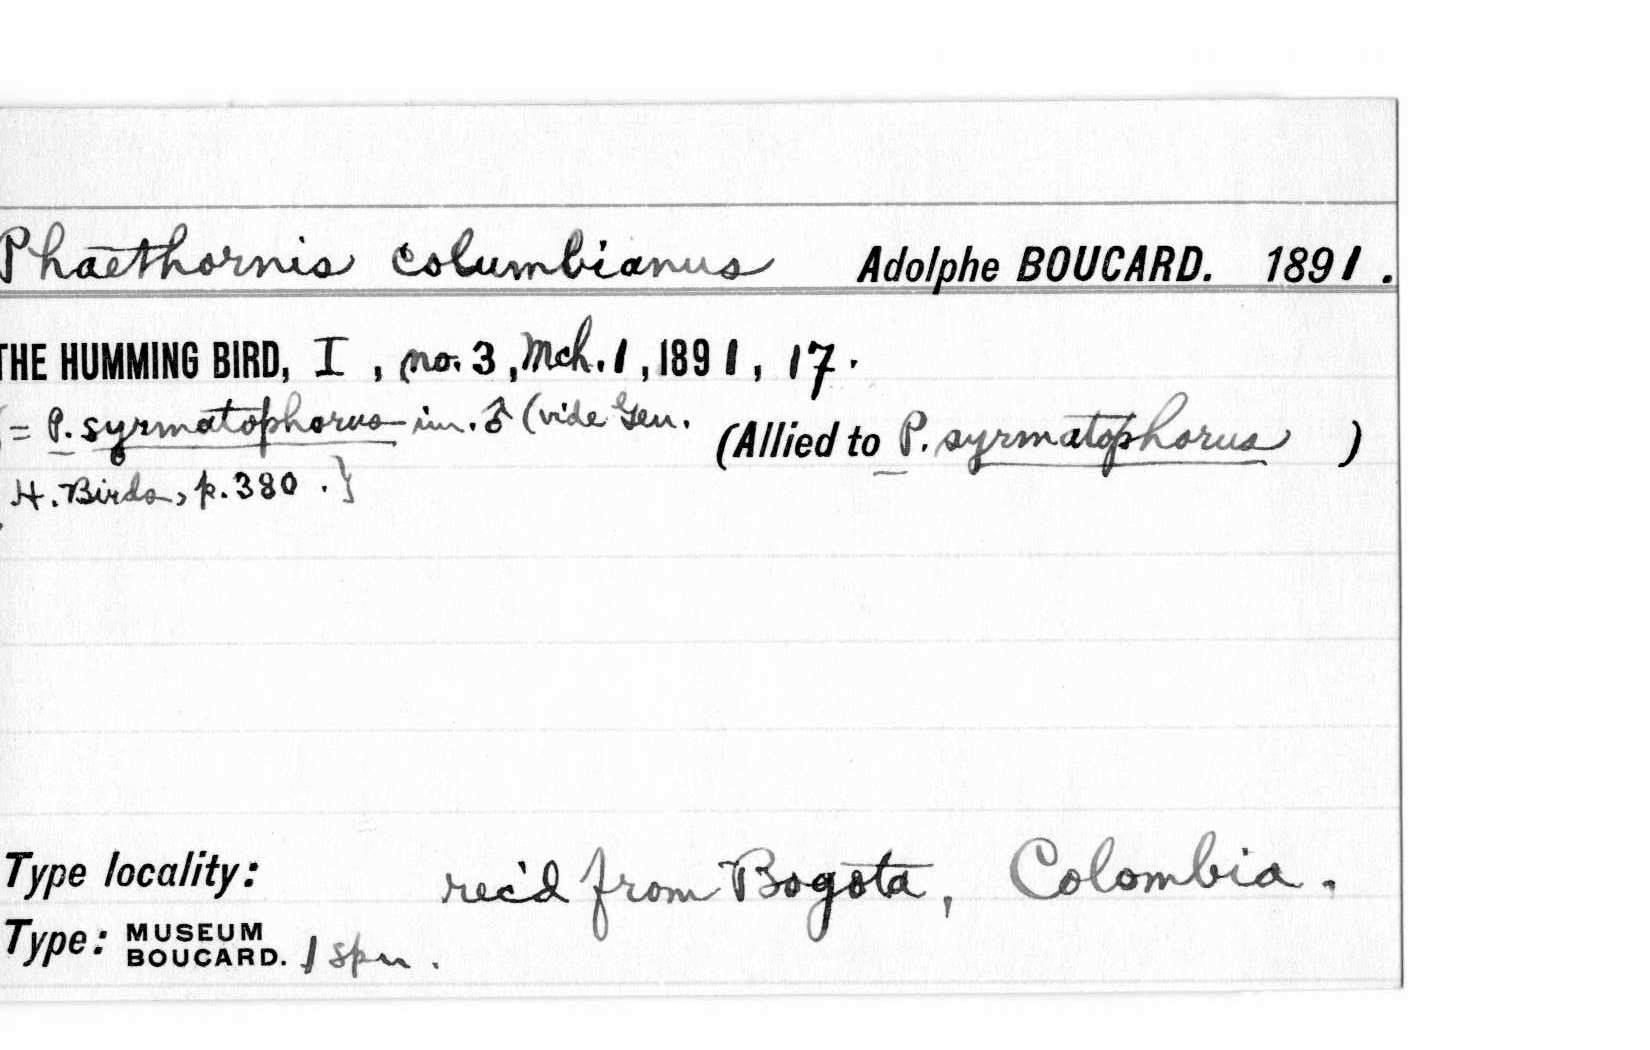 Phaethornis columbianus Adolphe BOUCARD. 1891.
THE HUMMING BIRD, I, no. 3, Mch. 1, 1891, 17.
{= P. syrmatophorus im. ♂ (vide Gen.
(Allied to P. syrmatophorus )
H. Birds, p. 380.}
Type locality: rec'd from Bogota, Colombia.
Type: MUSEUM BOUCARD. 1 spm.